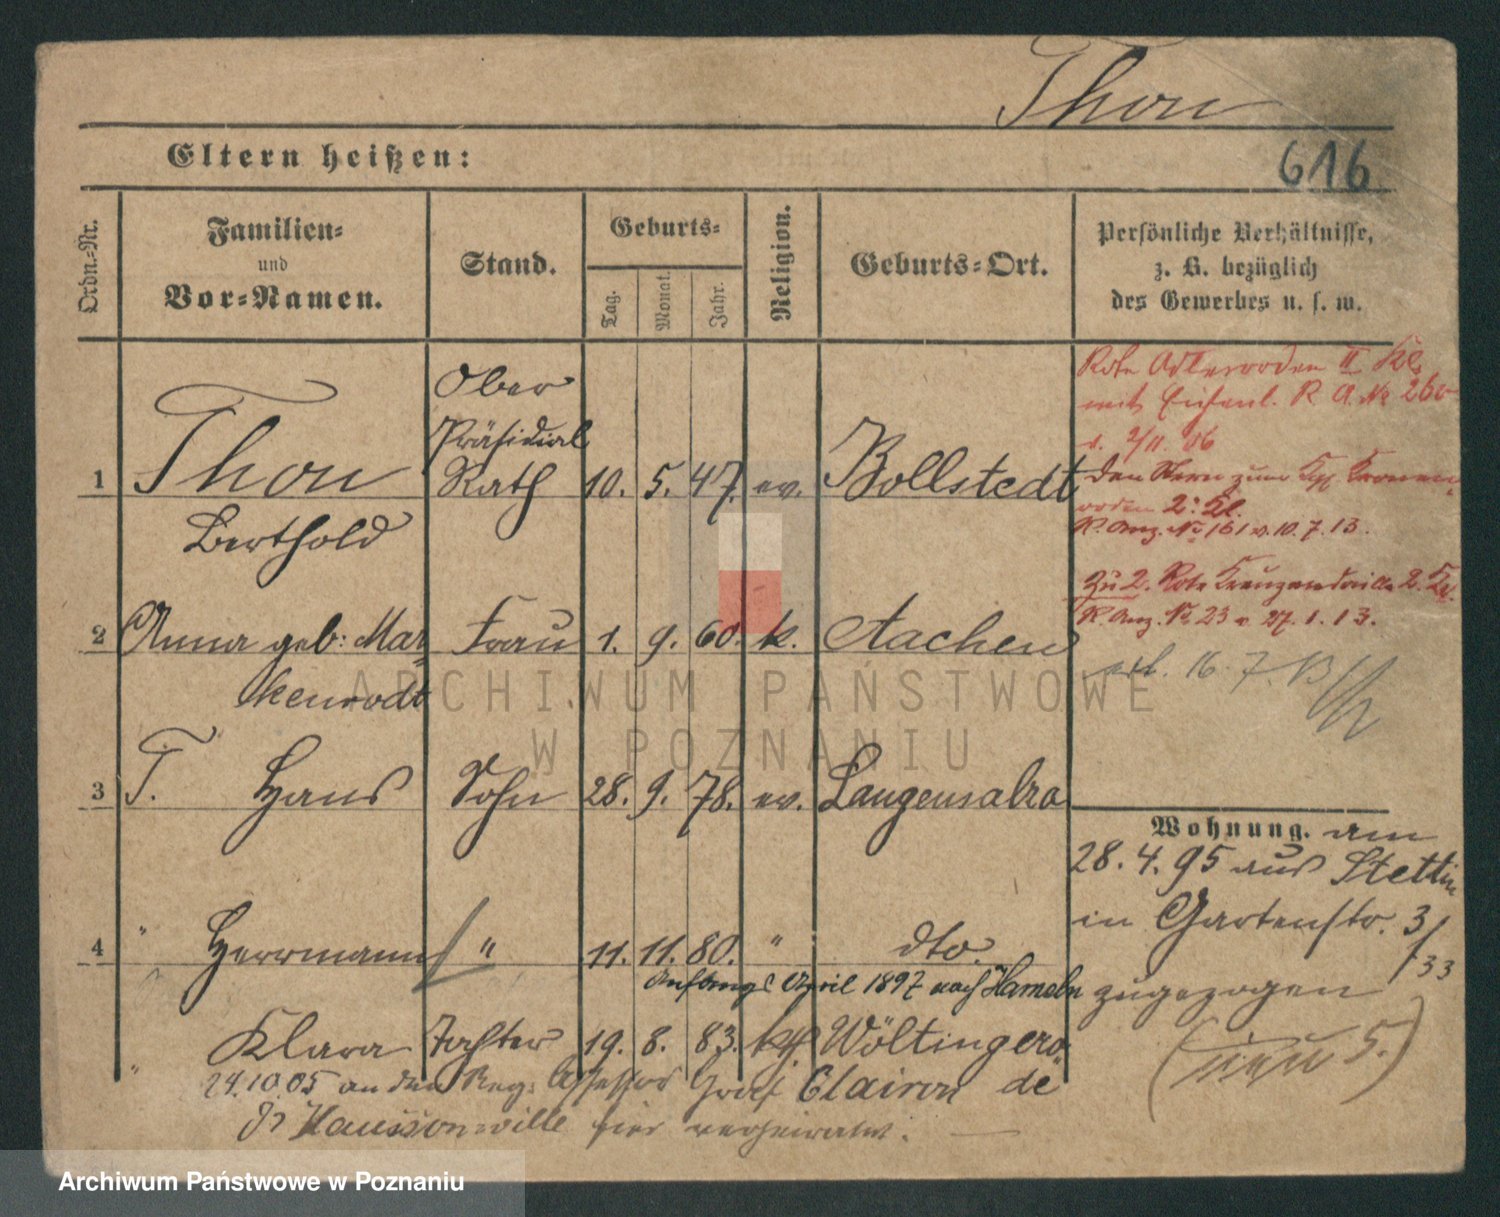 Thon
Eltern heißen:
616
Ordn.-Nr.
Familien-
und
Vor-Namen.
Stand.
Geburts-
Tag.
Monat.
Jahr.
Religion.
Geburts-Ort.
Persönliche Verhältnisse,
z. B. bezüglich
des Gewerbes u. s. w.
Ober
Präsidial
1 Thon Rath 10. 5. 47. ev. Bollstedt
Berthold
Rote Adlerorden II Kl.
mit Eichenl. R. A. No 260
v. 2/11. 06
den Stern zum Kgl. Kronen-
orden 2. Kl.
R. Anz. No 161 v. 10. 7. 13.
zu 2. Rote Kreuzmedaille 2. Kl.
R. Anz. No 23 v 27. 1. 13.
16. 7. 13
2 Anna geb: Mar- Frau 1. 9. 60. k. Aachen
kenrodt
3 T. Hans Sohn 28. 9. 78. ev. Langensalza
4 " Herrmann " 11. 11. 80. " dto.
Anfangs April 1897 nach Hameln
" Klara Tochter 19. 8. 83. kth. Wöltingero
24.10.05 an den Reg: Assessor Graf Clairon de
Haussonville hier verheiratet.
Wohnung. am
28. 4. 95 aus Stettin
in Gartenstr. 3/33
zugezogen
ARCHIWUM PAŃSTWOWE
W POZNANIU
Archiwum Państwowe w Poznaniu